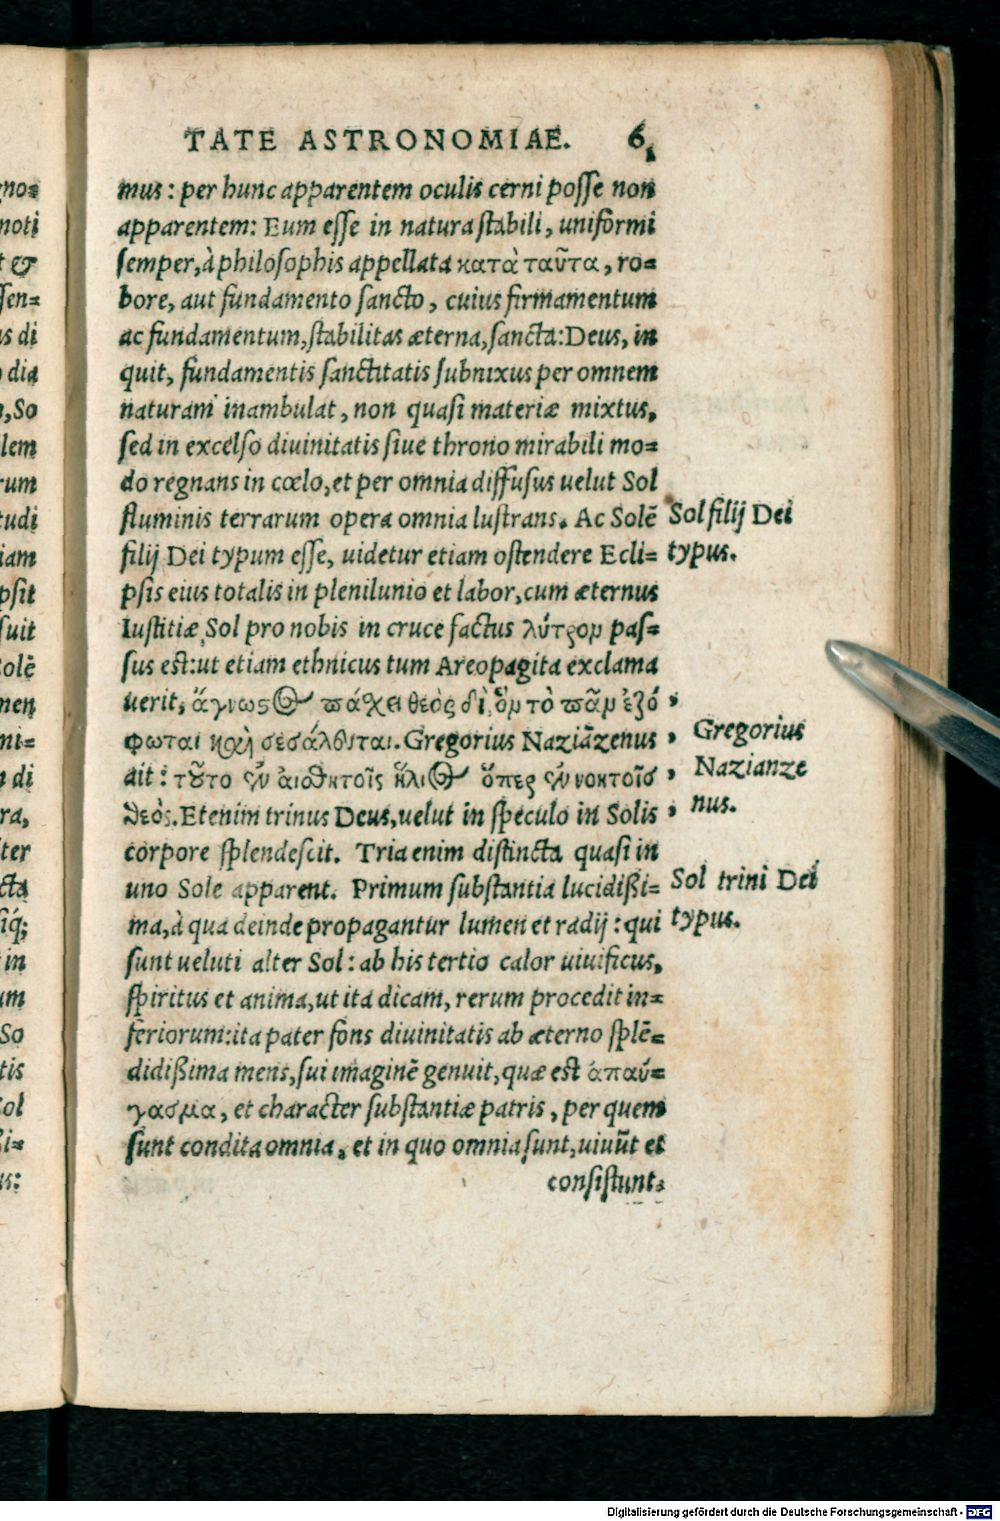 TATE ASTRONOMIAE. 6
mus: per hunc apparentem oculis cerni posse non
apparentem: Eum esse in natura stabili, uniformi
semper, à philosophis appellata κατὰ ταῦτα, ro=
bore, aut fundamento sancto, cuius firmamentum
ac fundamentum, stabilitas æterna, sancta: Deus, in
quit, fundamentis sanctitatis subnixus per omnem
naturam inambulat, non quasi materiæ mixtus,
sed in excelso diuinitatis siue throno mirabili mo=
do regnans in cœlo, et per omnia diffusus uelut Sol
fluminis terrarum opera omnia lustrans. Ac Solē
filij Dei typum esse, uidetur etiam ostendere Ecli=
psis eius totalis in plenilunio et labor, cum æternus
Iustitiæ Sol pro nobis in cruce factus λύτρον pas=
sus est: ut etiam ethnicus tum Areopagita exclama
uerit, ἄγνωστος πάχει θεὸς δἰ ὃν τὸ πᾶν ἐζό
φωται καὶ σεσάλευται. Gregorius Nazianzenus
ait: τοῦτο ἐν αἰσθητοῖς ἥλιος ὅπερ ἐν νοητοῖς
θεός. Etenim trinus Deus, uelut in speculo in Solis
corpore splendescit. Tria enim distincta quasi in
uno Sole apparent. Primum substantia lucidißi=
ma, à qua deinde propagantur lumen et radij: qui
sunt ueluti alter Sol: ab his tertio calor uiuificus,
spiritus et anima, ut ita dicam, rerum procedit in=
feriorum: ita pater fons diuinitatis ab æterno splē=
didißima mens, sui imaginē genuit, quæ est ἀπαύ=
γασμα, et character substantiæ patris, per quem
sunt condita omnia, et in quo omnia sunt, uiuūt et
consistunt.
Sol filij Dei
typus.
Gregorius
Nazianze
nus.
Sol trini Dei
typus.
gno=
noti
t &
sen=
us di
dia
So
lem
rum
tudi
iam
psit
suit
olē
men
ni=
di
ra,
ter
cta
siq́;
in
um
So
tis
ol
ßi=
us:
Digitalisierung gefördert durch die Deutsche Forschungsgemeinschaft - DFG